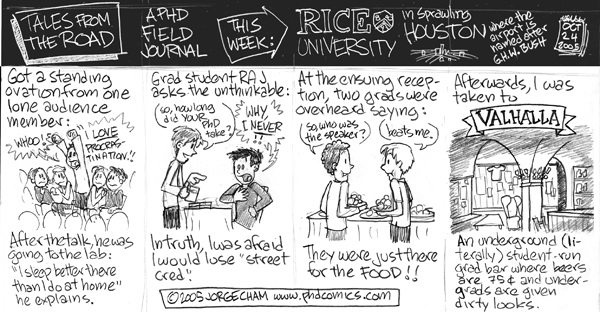 TALES FROM
THE ROAD
A PHD
FIELD
JOURNAL
THIS
WEEK:
RICE
UNIVERSITY
in sprawling
HOUSTON
where the
airport is
named after
G.H.W. BUSH
OCT
24
2005
Got a standing
ovation from one
lone audience
member:
WHOO!
I LOVE
PROCRAS-
TINATION!!
After the talk, he was
going to the lab:
"I sleep better there
than I do at home"
he explains.
Grad student RAJ
asks the unthinkable:
so, how long
did YOUR
PhD
take?
WHY,
I NEVER
!!!
In truth, I was afraid
I would lose "street
cred".
At the ensuing recep-
tion, two grads were
overheard saying:
so, who was
the speaker?
beats me.
They were just there
for the FOOD!!
Afterwards, I was
taken to
VALHALLA
An underground (li-
terally) student-run
grad bar where beers
are 75¢ and under-
grads are given
dirty looks.
© 2005 JORGE CHAM www.phdcomics.com